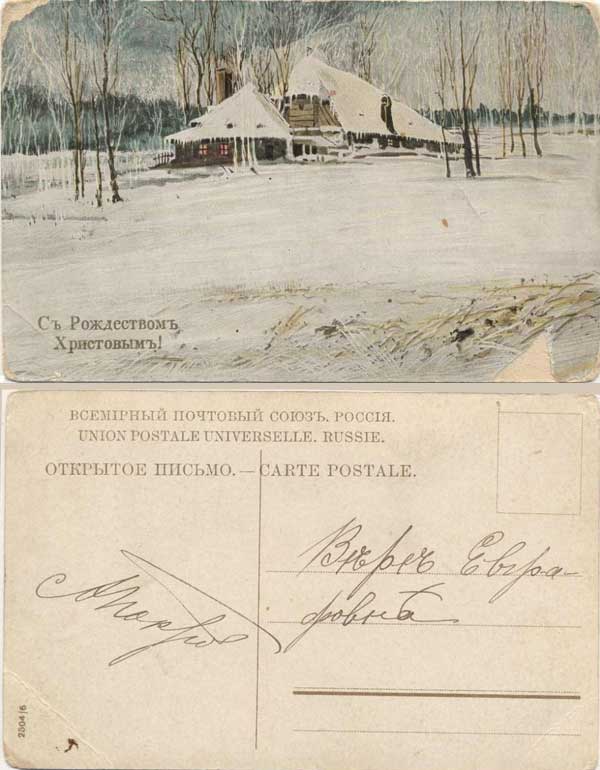 Съ Рождествомъ
Христовымъ!
ВСЕМІРНЫЙ ПОЧТОВЫЙ СОЮЗЪ. РОССІЯ.
UNION POSTALE UNIVERSELLE. RUSSIE.
ОТКРЫТОЕ ПИСЬМО.—CARTE POSTALE.
Вѣрѣ Евгра-
фовнѣ
2504/6